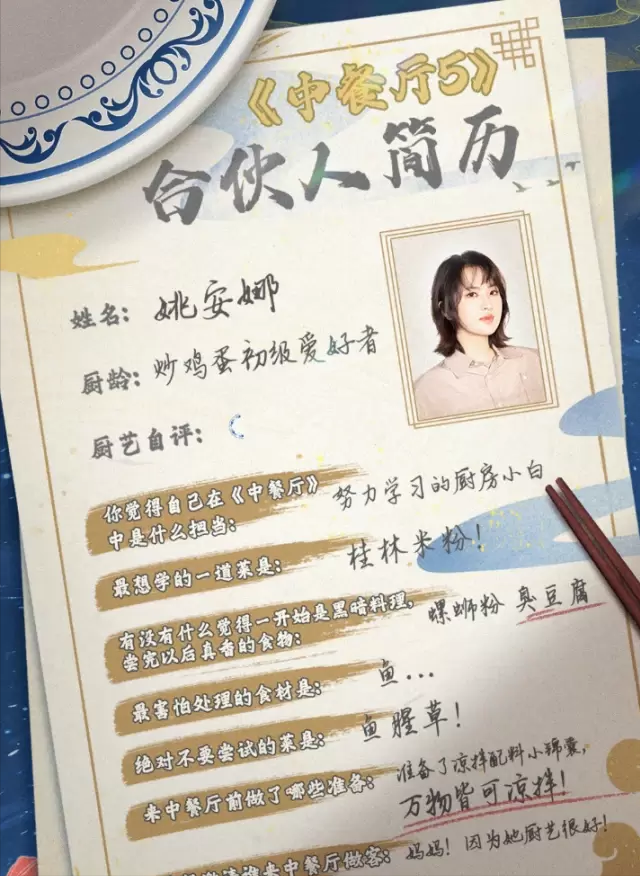 《中餐厅5》
合伙人简历
姓名: 姚安娜
厨龄: 炒鸡蛋初级爱好者
厨艺自评:
你觉得自己在《中餐厅》
中是什么担当:
努力学习的厨房小白
最想学的一道菜是:
桂林米粉!
有没有什么觉得一开始是黑暗料理,
尝完以后真香的食物:
螺蛳粉 臭豆腐
最害怕处理的食材是:
鱼...
绝对不要尝试的菜是:
鱼腥草!
来中餐厅前做了哪些准备:
准备了凉拌配料小锦囊,
万物皆可凉拌!
来中餐厅做客:
妈妈! 因为她厨艺很好!